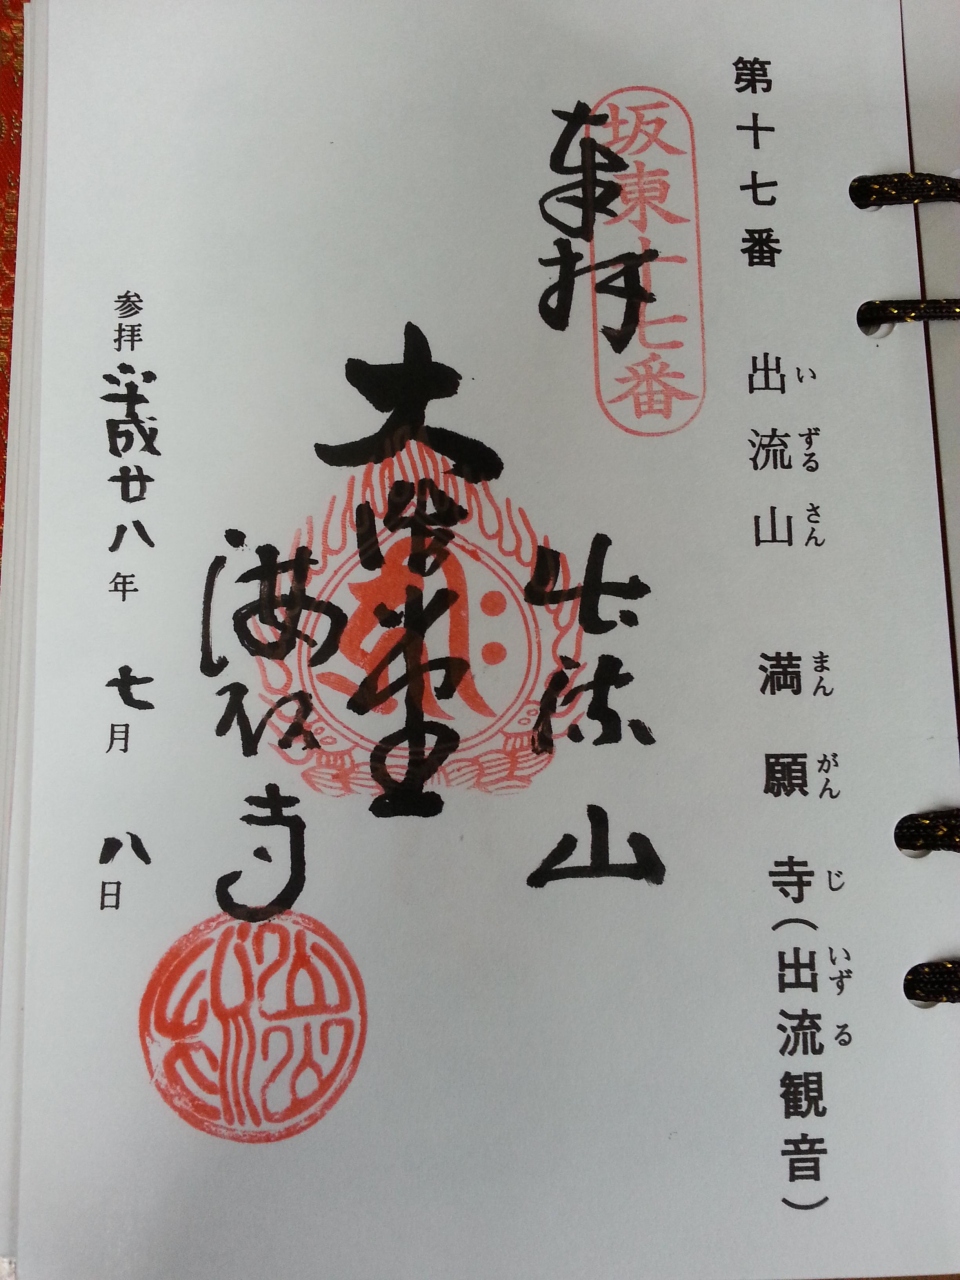 第十七番 出流山 満願寺(出流観音)
いずるさん まんがんじ いずる
坂東十七番
奉拝
出流山
大御堂
満願寺
参拝 平成廿八年 七月 八日